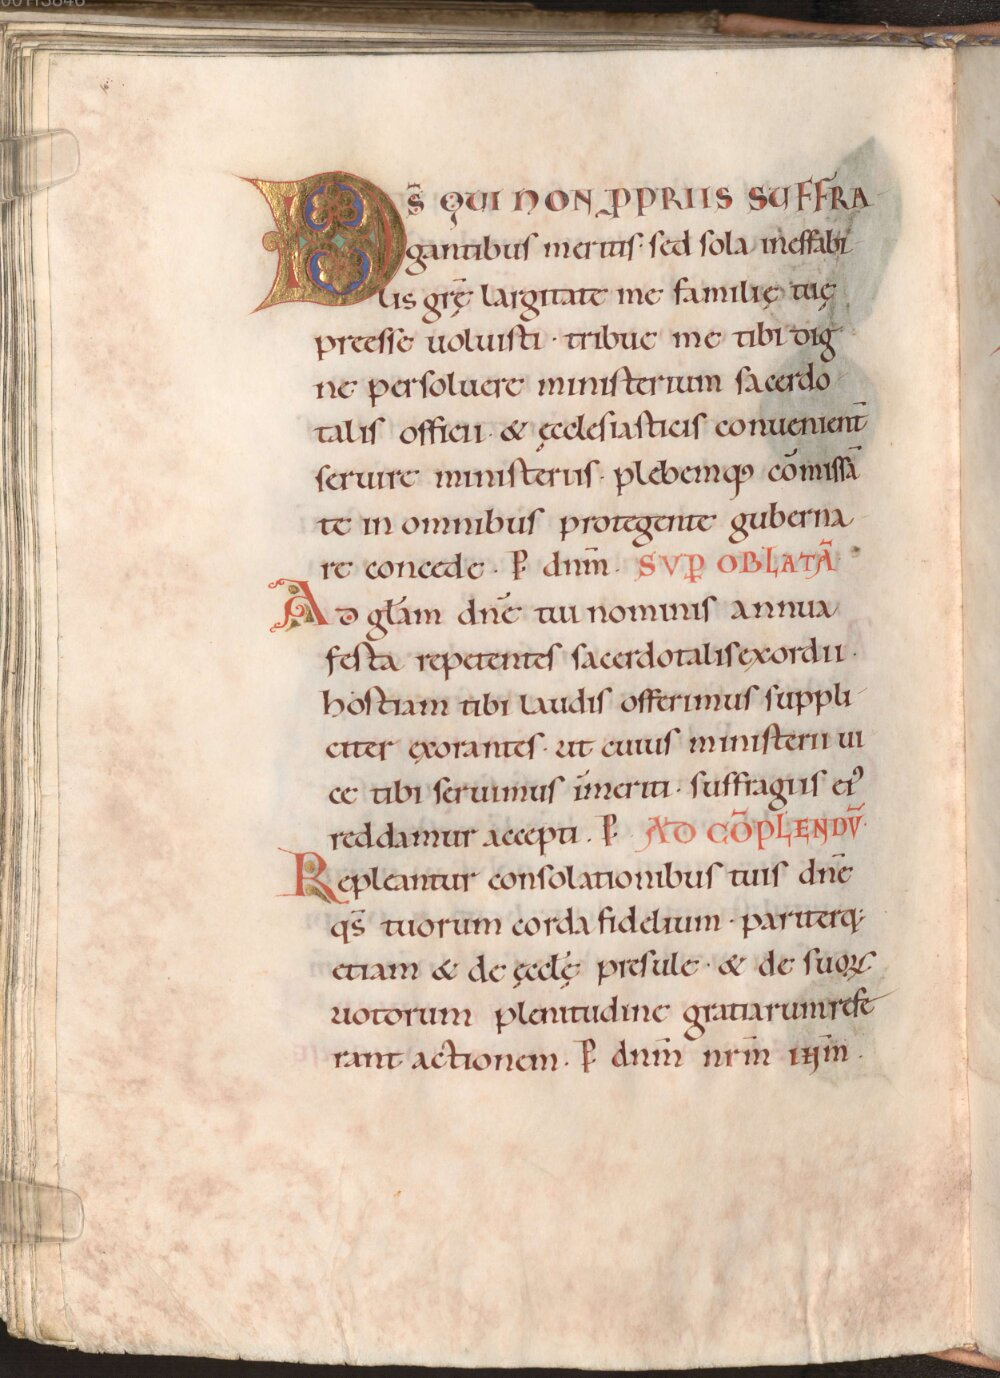 DS̄ QUI NON ꝓPRIIS SUFFRA
gantibus meritis · sed sola ineffabi
lis grę̄ largitate me familię tuę
preesse uoluisti · tribue me tibi dig
ne persoluere ministerium sacerdo
talis officii · & ęcclesiasticis conuenient̄
seruire ministeriis · plebemq; cōmissā
te in omnibus protegente guberna
re concede · P̄ dnm̄ · SVP OBLATĀ
Ad glām dnē tui nominis annua
festa repetentes sacerdotalis exordii ·
hostiam tibi laudis offerimus suppli
citer exorantes · ut cuius ministerii ui
ce tibi seruimus īmeriti · suffragiis ei᾽
reddamur accepti · P̄ AD CŌPLENDV̄ ·
Repleantur consolationibus tuis dnē
qs̄ tuorum corda fidelium · pariterq;
etiam & de ęcclę̄ presule · & de suoꝝ
uotorum plenitudine gratiarum refe
rant actionem · P̄ dnm̄ nrm̄ ihm̄ ·